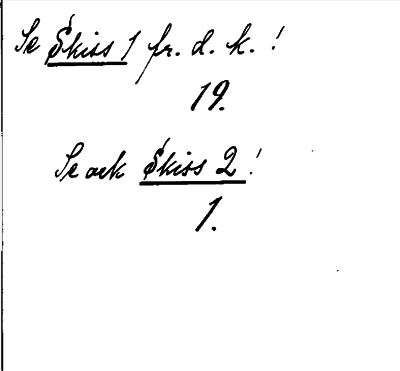 Se Skiss 1 fr. d. k. !
19.
Se ock Skiss 2 !
1.